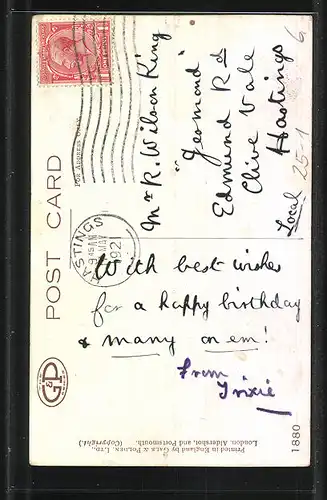 POST CARD
For Address Only.
HASTINGS
8 45 AM
MAY
1921
Mr R. Wilson King
"Jesmond"
Edmund Rd
Clive Vale
Hastings
Local
25-1
6
With best wishes
for a happy birthday
& many on em!
From
Trixie
G&P
Printed in England by GALE & POLDEN, LTD.,
London, Aldershot, and Portsmouth.
(Copyright.)
1880